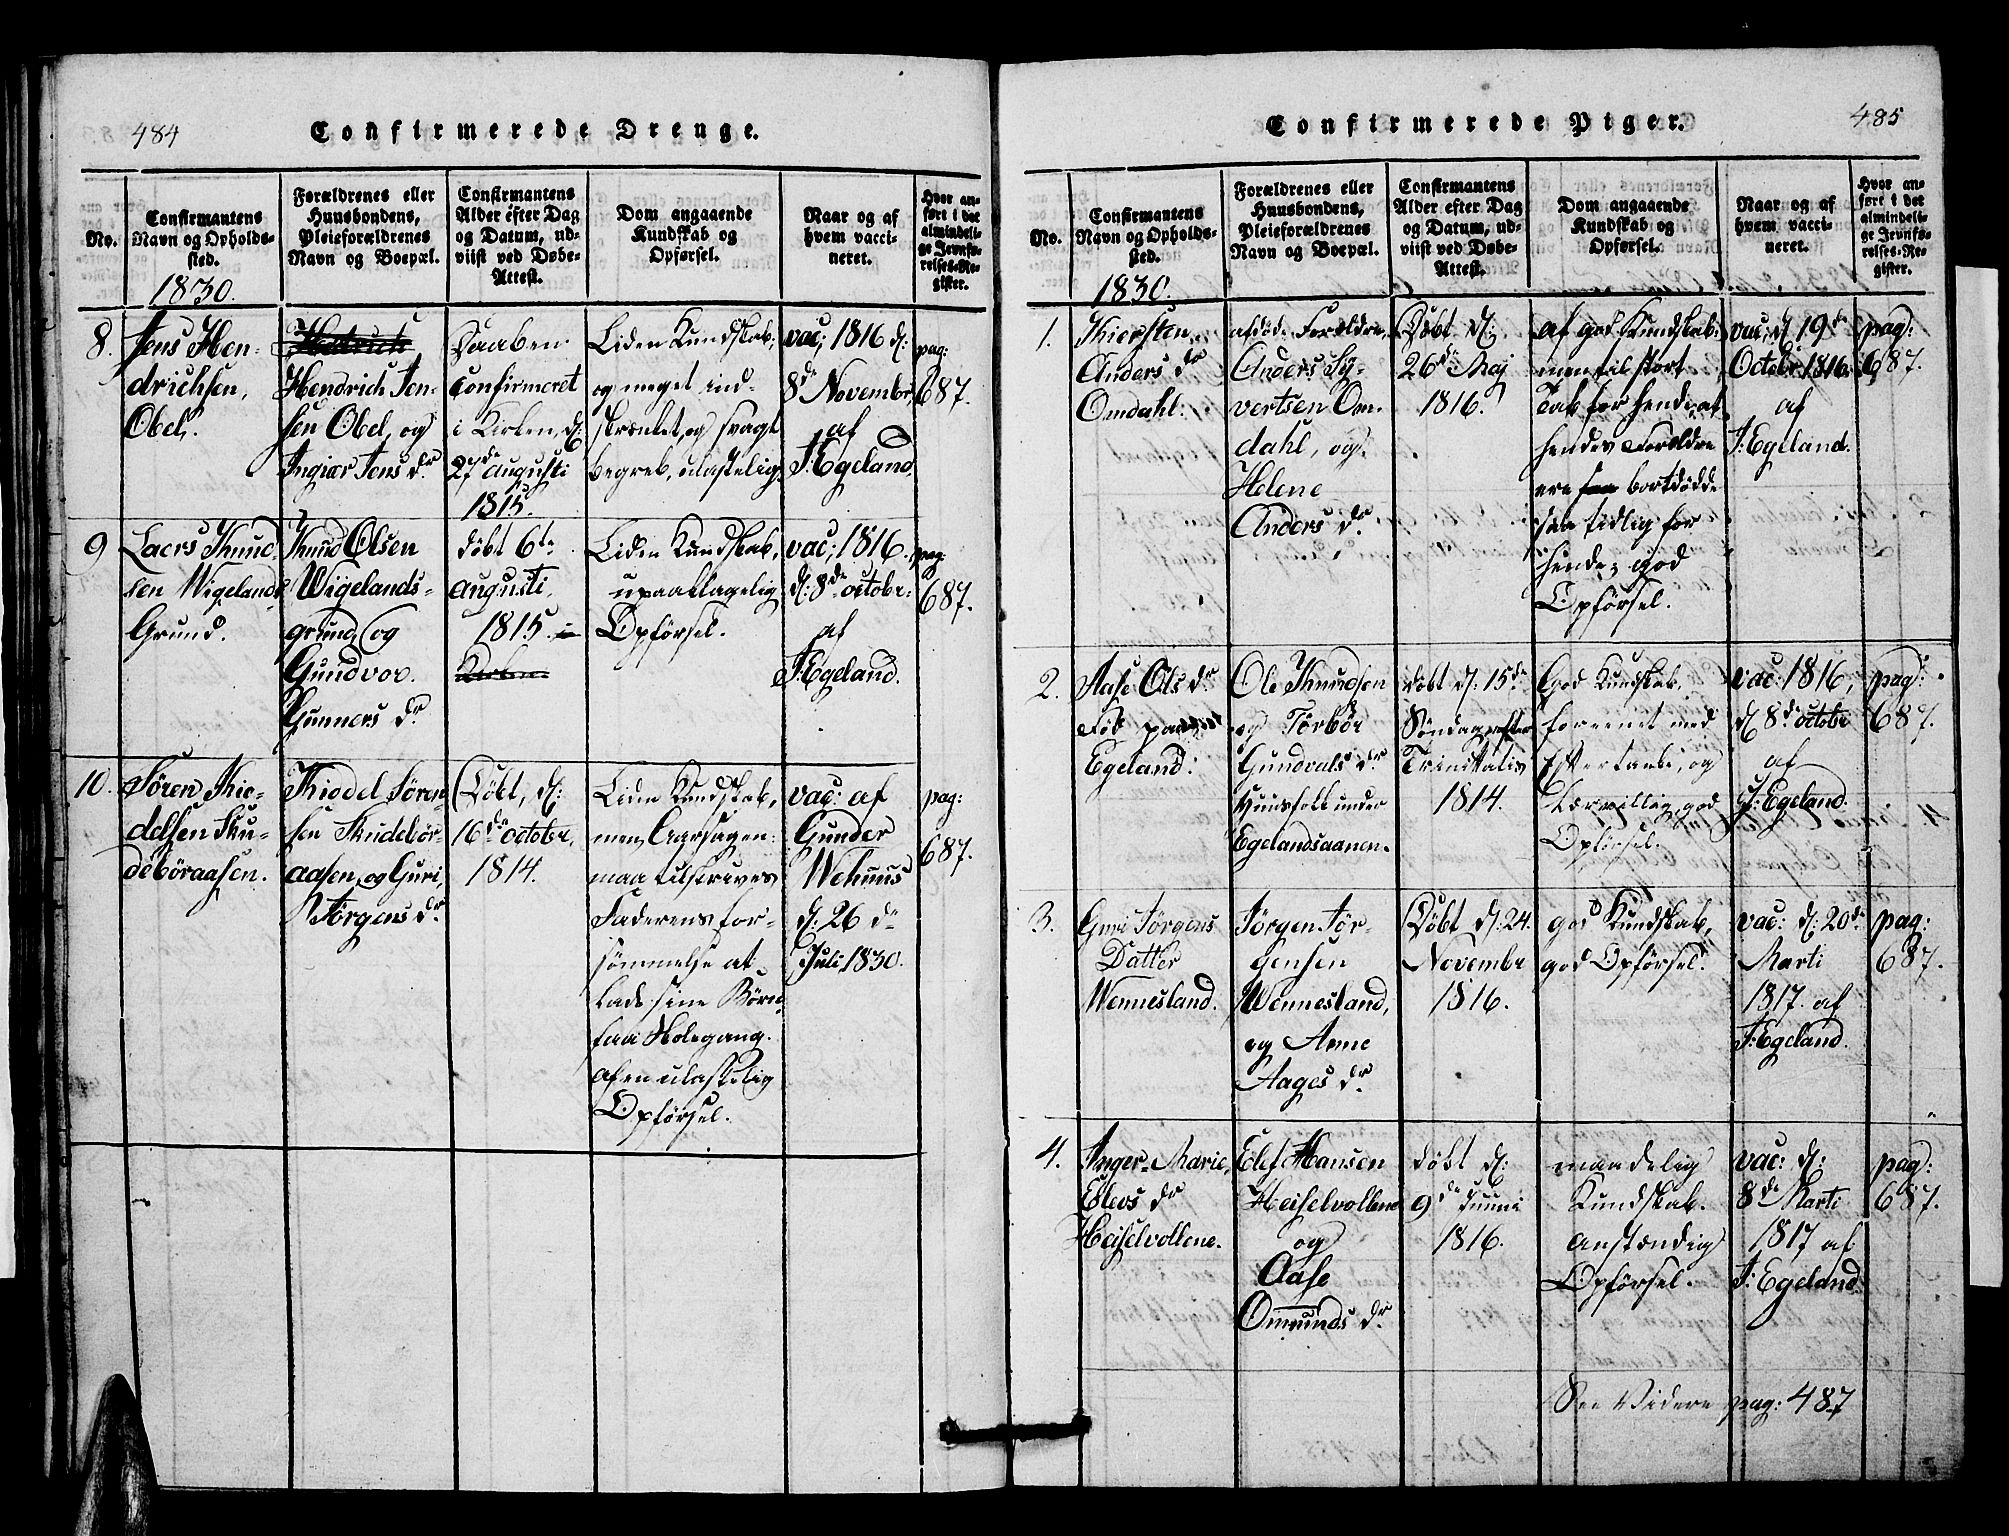 484
Confirmerede Drenge.
No.
Confirmantens
Navn og Opholds-
sted.
1830.
Forældrenes eller
Huusbondens,
Pleieforældrenes
Navn og Boepæl.
Confirmantens
Alder efter Dag
og Datum, ud-
viist ved Døbe-
Attest.
Dom angaaende
Kundskab og
Opførsel.
Naar og af
hvem vacci-
neret.
Hvor an-
ført i det
almindeli-
ge Jevnfø-
relses-Re-
gister.
8.
Jens Hen-
drichsen,
Obel.
Hendrich Jen-
sen Obel, og
Ingiær Jens dr
confirmeret
i Kirken, d:
27de augusti
1815.
Liden Kundskab,
og meget ind-
skrænket, og svagt
begreb, ulastelig
vac; 1816 d:
8de November
af
J: Egeland.
pag:
687.
9
Laers Knud-
sen Wigelands
Grund.
Knud Olsen
Wigelands-
grund, og
Gundvor
Gunners dr
døbt 6te
augusti,
1815. i
Kirken
Liden Kundskab,
upaaklagelig
Opførsel.
vac; 1816.
d: 8de octobr:
af
J: Egeland.
pag:
687.
10.
Søren Kie-
delsen Sku-
debøraasen.
Kiedel Søren-
sen Skudebør-
aasen, og Guri,
Jørgens dr
Døbt, d:
16de october,
1814.
Liden Kundskab,
men Aarsagen
maa tilskrives
Faderens for-
sømmelse at
lade sine Børn
faa Skolegang.
af en ulastelig
Opførsel.
vac: af
Gunder
Wehuus
d: 26de
Juli 1830.
pag:
687.
Confirmerede Piger.
485
No.
Confirmantens
Navn og Opholds-
sted.
1830.
Forældrenes eller
Huusbondens,
Pleieforældrenes
Navn og Boepæl.
Confirmantens
Alder efter Dag
og Datum, ud-
viist ved Døbe-
Attest.
Dom angaaende
Kundskab og
Opførsel.
Naar og af
hvem vacci-
neret.
Hvor an-
ført i det
almindeli-
ge Jevnfø-
relses-Re-
gister.
1.
Kiersten
Anders dr
Omdahl.
afdøde Forældre,
Anders Sy-
vertsen Om-
dahl, og
Helene
Anders dr
Døbt d:
26de Maj
1816.
af god Kundskab.
men til stort
Tab for hende, at
hendes Forældre
ere bortdødde
saa tidlig for
hende; god
Opførsel.
vac; d 19de
Octobr: 1816.
af
J: Egeland.
pag:
687.
2.
Aase Ols dr
Egeland.
Ole Knudsen
og Torbør
Gundvals dr
Huusfolk under
Egelandsaanen.
døbt d: 15de
Søndag efter
Trinitatis
1814.
God Kundskab,
foreenet med
Eftertanke, og
Lærvillig, god
Opførsel.
vac: 1816,
d 8de octobr
af
J: Egeland.
pag:
687.
3.
Guri Jørgens
Datter
Wennesland.
Jørgen Jør-
gensen
Wennesland,
og Anne
Aages dr
Døbt d: 24.
Novembr
1816.
god Kundskab,
god Opførsel.
vac: d: 20de
Marti
1817. af
J: Egeland.
pag:
687.
4.
Inger-Marie,
Elevs dr
Heiselvollene.
Elef Hansen
Heiselvollene
og
Aase
Omunds dr
døbt d:
9de Junii
1816.
maadelig
Kundskab.
anstændig
Opførsel.
vac: d:
8de Marti
1817 af
J: Egeland
pag:
687.
See Videre pag: 487